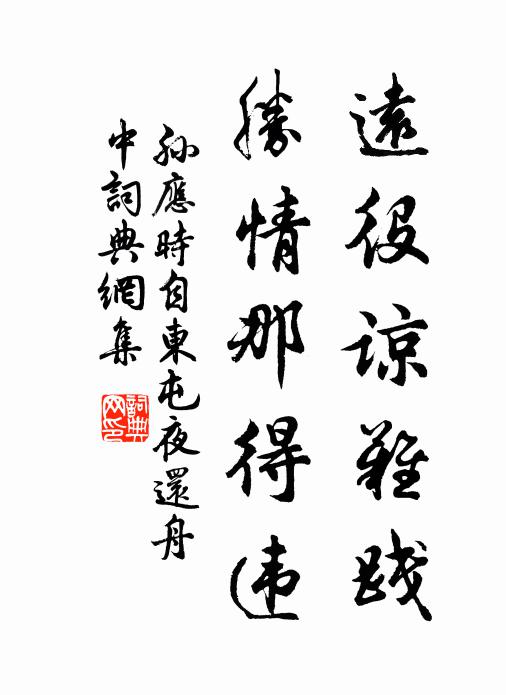 遠役諒難踐
勝情那得違
孫應時自東屯夜還舟
中詞典網集
詞典
网印